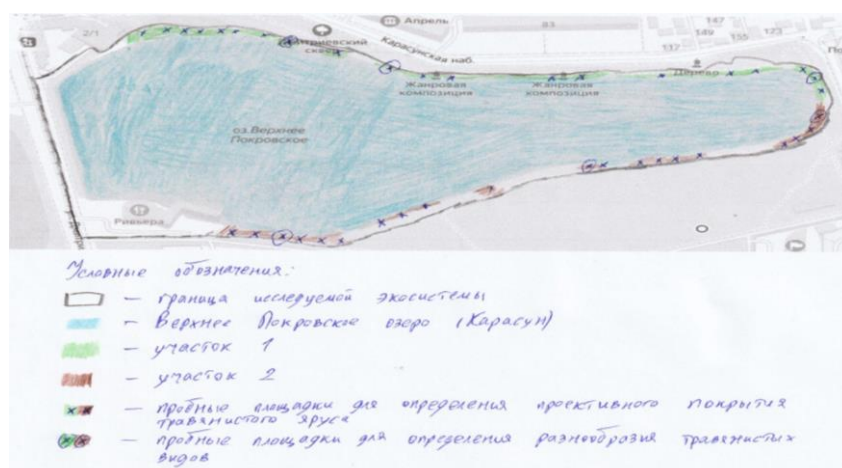 2/1
Апрель
83
147
149
155
173
137
Карасунская наб.
Жанровая
композиция
Жанровая
композиция
Дерево
оз. Верхнее
Покровское
Ривьера
Условные обозначения:
– граница исследуемой экосистемы
– Верхнее Покровское озеро (Карасун)
– участок 1
– участок 2
– пробные площадки для определения проективного покрытия
травянистого яруса
– пробные площадки для определения разнообразия травянистых
видов